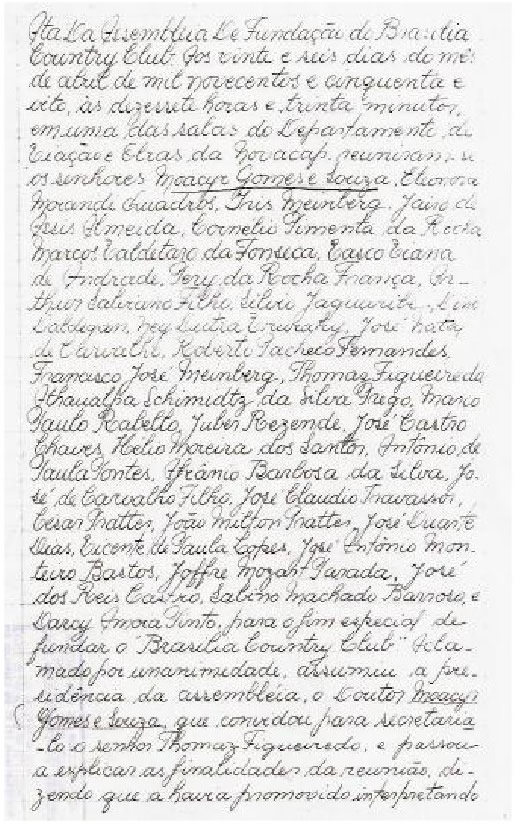 Ata Da Assembléia De Fundação do Brasília
Country Club. Aos vinte e seis dias do mês
de abril de mil novecentos e cinquenta e
oito, às dezessete horas e trinta minutos,
em uma das salas do Departamento de
Viação e Obras da Novacap, reuniram-se
os senhores Moacyr Gomes e Souza, Eleonora
Morande Quadros, Iris Meinberg, Jairo de
Assis Almeida, Cornelio Pimenta da Rocha
Marcos Valdetaro da Fonseca, Vasco Viana
de Andrade, Pery da Rocha França, Ar-
thur Saberano Filho, Silvio Jaguaribe,
Ney Dutra Ururahy, José Nata,
de Carvalho, Roberto Pacheco Fernandes,
Francisco José Meinberg, Thomaz Figueiredo
Athaualpa Schimidtz da Silva Prego, Mario
Paulo Rabello, Juber Rezende, José Castro
Chaves, Hélio Moreira dos Santos, Antônio de
Paula Pontes, Afrânio Barbosa da Silva, Jo-
sé de Carvalho Filho, José Claudio Travassos,
Cesar Prattes, João Milton Prattes, José Duarte
Dias, Vicente de Paula Lopes, José Antônio Mon-
teiro Bastos, Joffre Mozart Parada, José
dos Reis Castro, Sabino Machado Barroso, e
Darcy Amora Pinto, para o fim especial de
fundar o "Brasília Country Club" Acla-
mado por unanimidade, assumiu a pre-
sidência da assembléia, o Doutor Moacyr
Gomes e Souza, que convidou para secretaria
-lo o senhor Thomaz Figueiredo, e passou
a explicar as finalidades da reunião, di-
zendo que a havia promovido interpretando